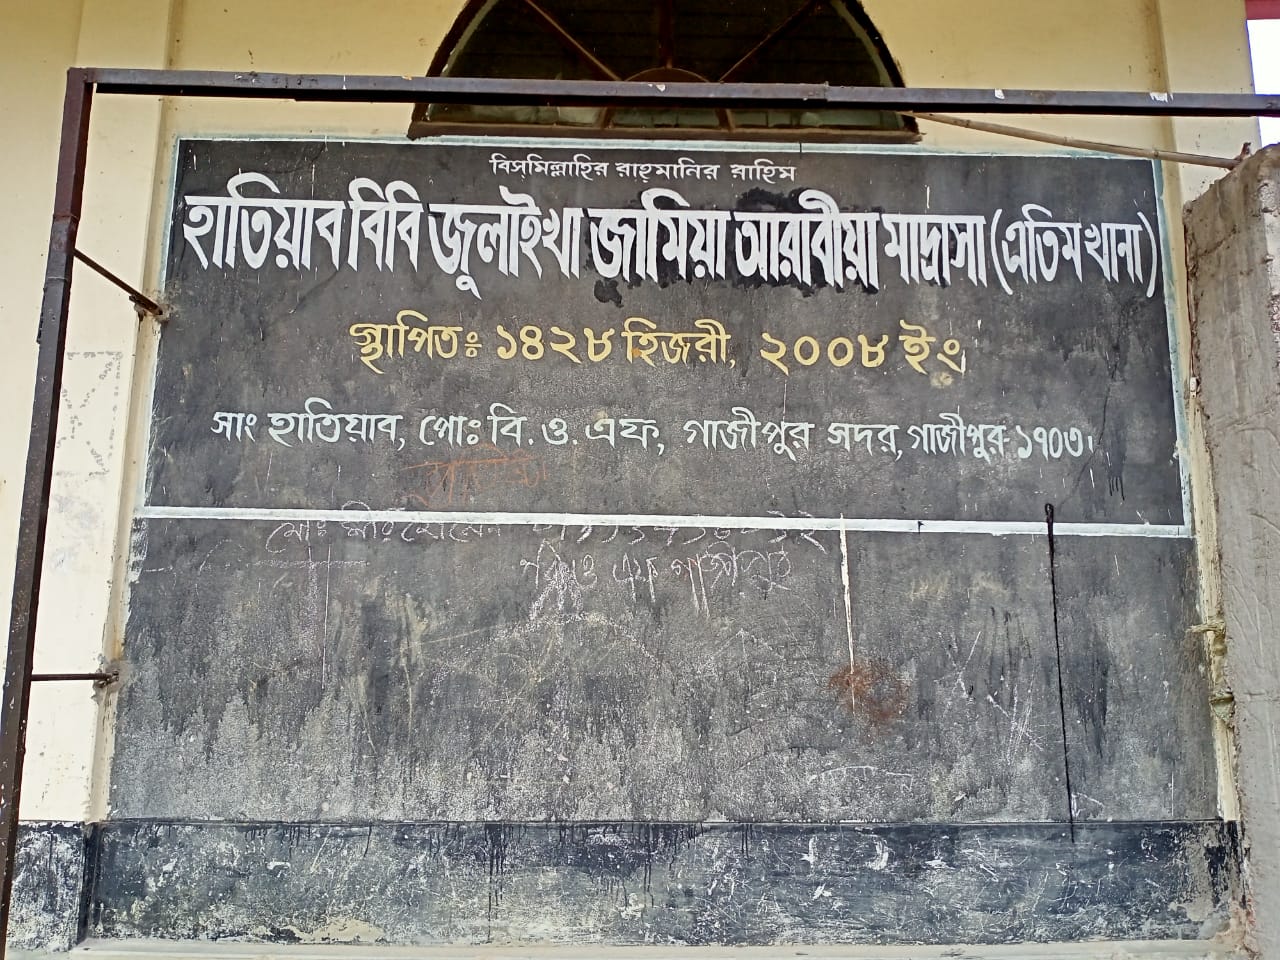 বিসমিল্লাহির রাহমানির রাহিম
হাতিয়াব বিবি জুলাইখা জামিয়া আরাবীয়া মাদ্রাসা (এতিম খানা)
স্থাপিতঃ ১৪২৮ হিজরী, ২০০৮ ইং
সাং হাতিয়াব, পোঃ বি. ও. এফ, গাজীপুর সদর, গাজীপুর-১৭০৩।
মোঃ
ও এফ গাজীপুর